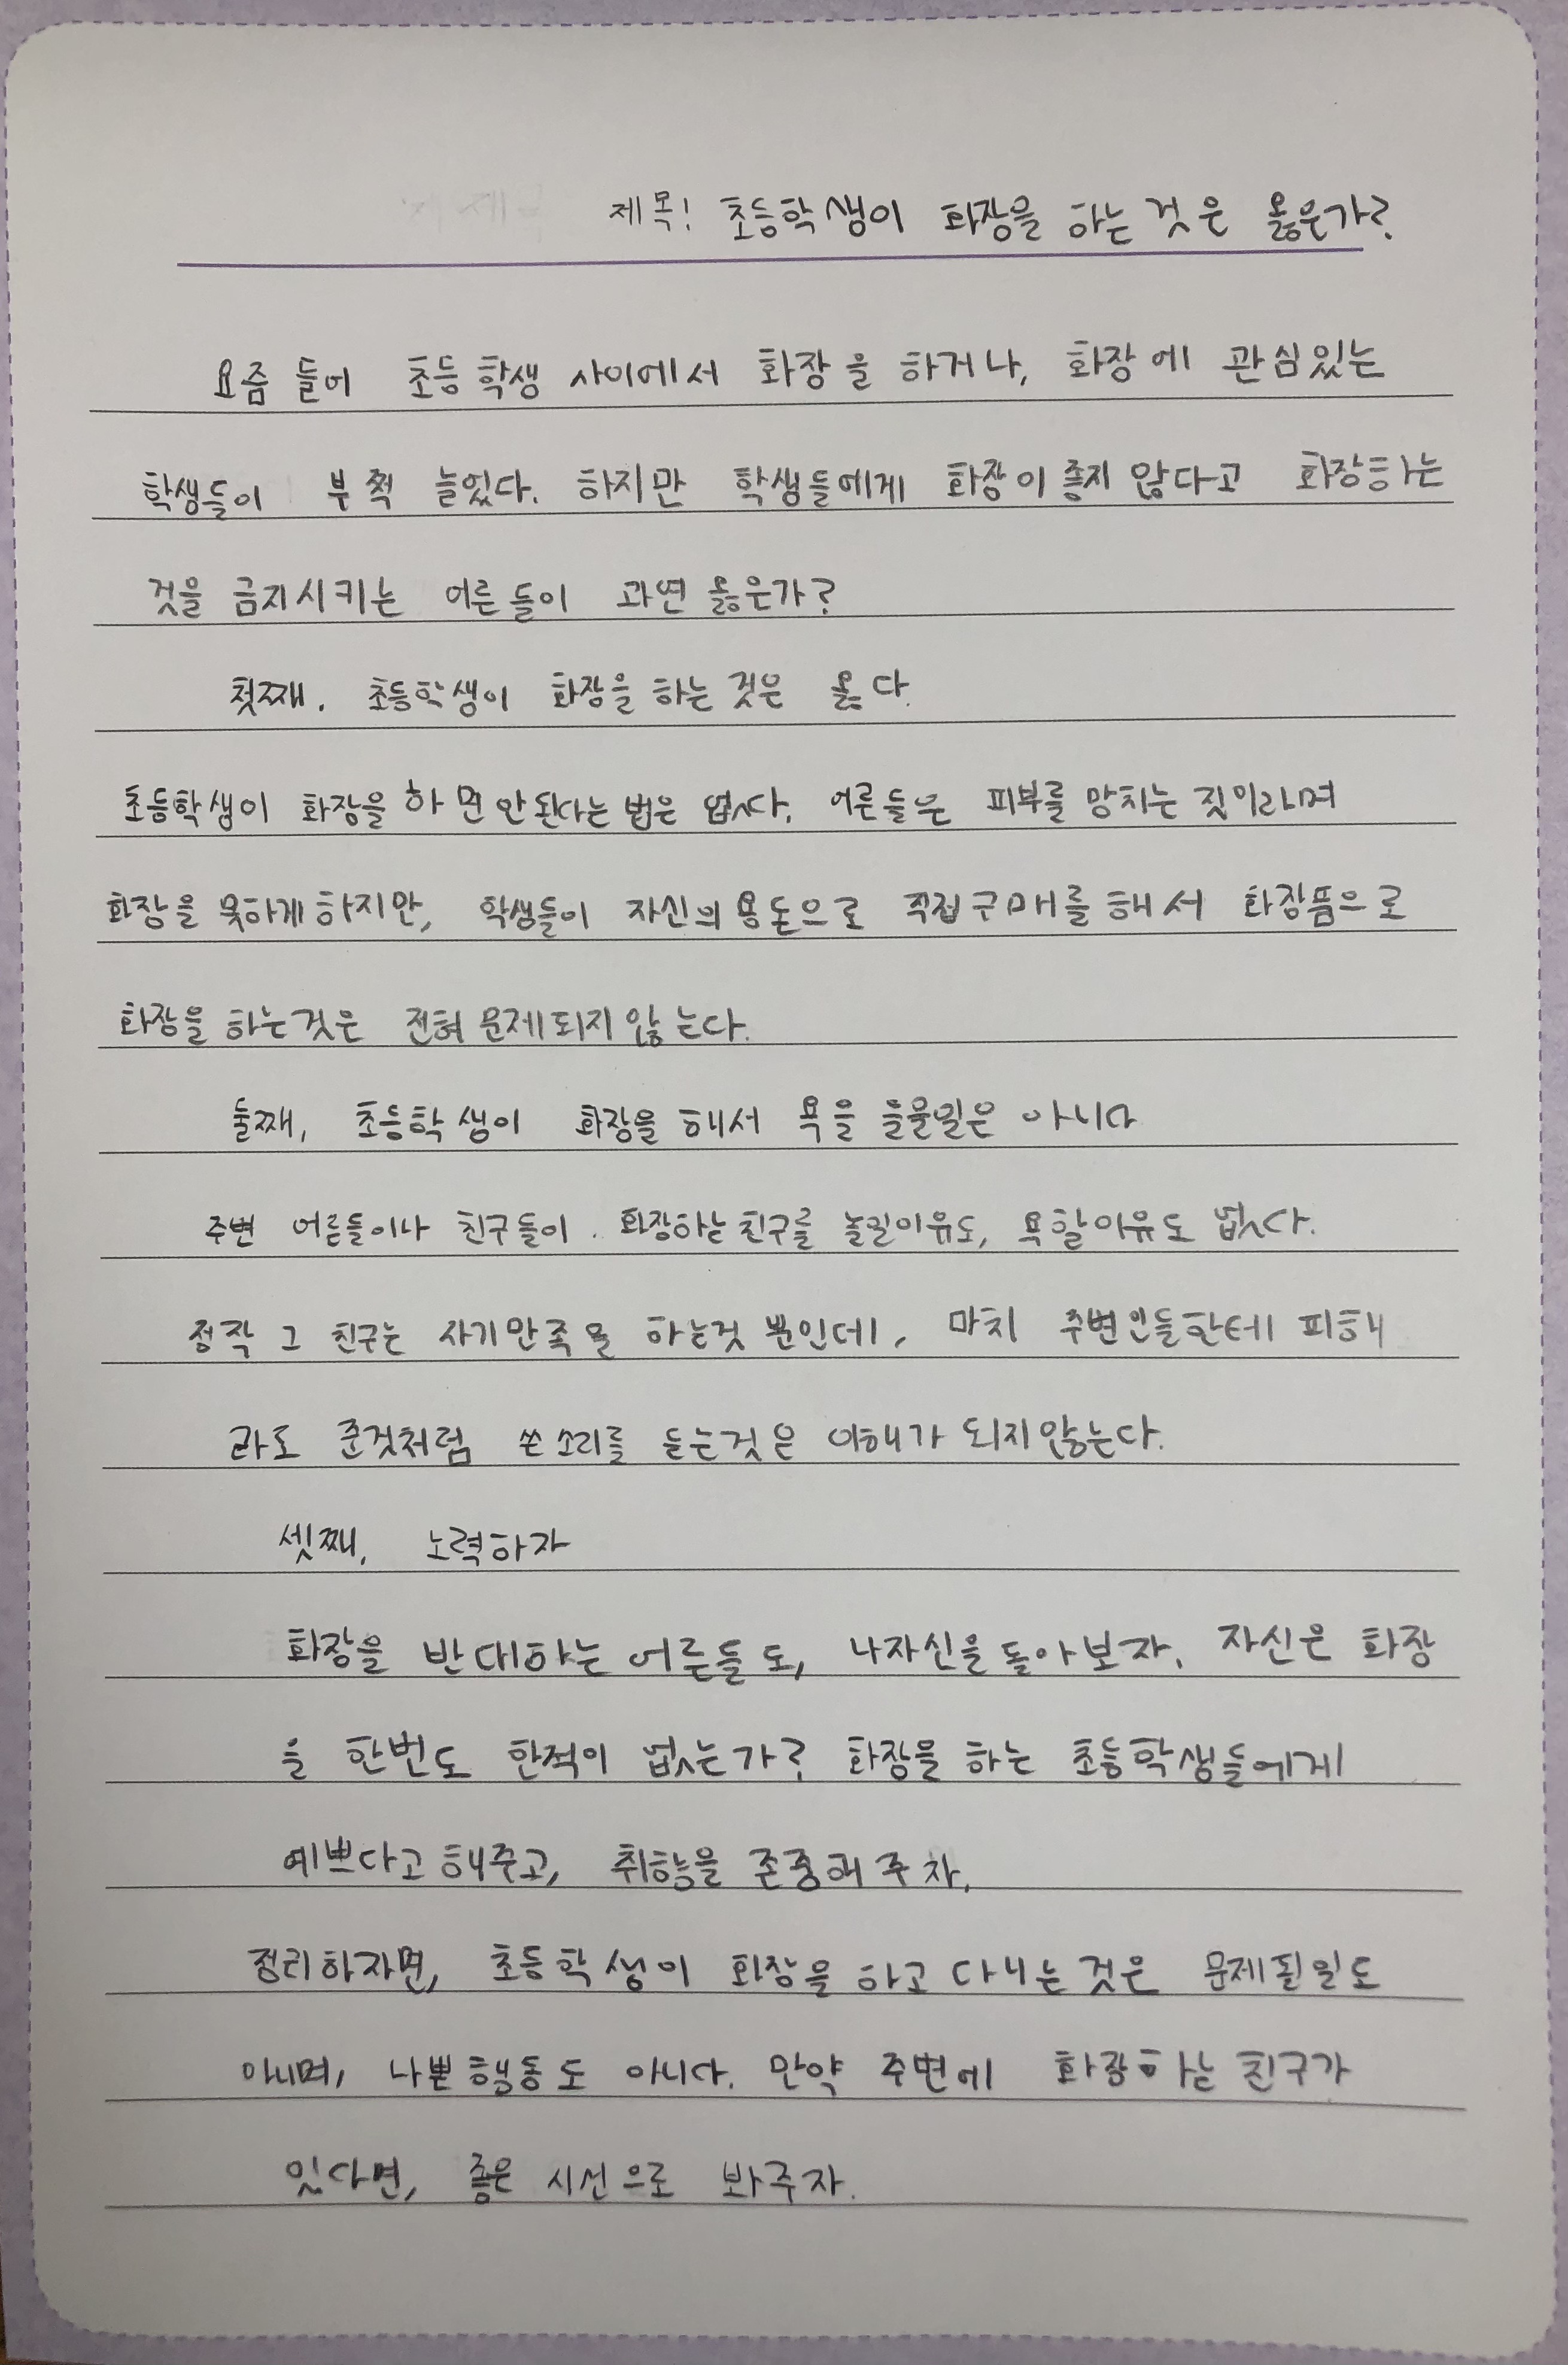 제목! 초등학생이 화장을 하는 것은 옳은가?
요즘 들어 초등학생 사이에서 화장을 하거나, 화장에 관심있는
학생들이 부쩍 늘었다. 하지만 학생들에게 화장이 좋지 않다고 화장하는
것을 금지시키는 어른들이 과연 옳은가?
첫째, 초등학생이 화장을 하는 것은 옳다.
초등학생이 화장을 하면 안된다는 법은 없다. 어른들은 피부를 망치는 짓이라며
화장을 못하게 하지만, 학생들이 자신의 용돈으로 직접 구매를 해서 화장품으로
화장을 하는것은 전혀 문제되지 않는다.
둘째, 초등학생이 화장을 해서 욕을 들을일은 아니다
주변 어른들이나 친구들이 화장하는 친구를 놀릴이유도, 욕할이유도 없다.
정작 그 친구는 자기만족을 하는것 뿐인데, 마치 주변인들한테 피해
라도 준것처럼 쓴소리를 듣는것은 이해가 되지않는다.
셋째, 노력하자
화장을 반대하는 어른들도, 나자신을 돌아보자. 자신은 화장
을 한번도 한적이 없는가? 화장을 하는 초등학생들에게
예쁘다고 해주고, 취향을 존중해주자.
정리하자면, 초등학생이 화장을 하고 다니는 것은 문제될일도
아니며, 나쁜행동도 아니다. 만약 주변에 화장하는 친구가
있다면, 좋은 시선으로 봐주자.